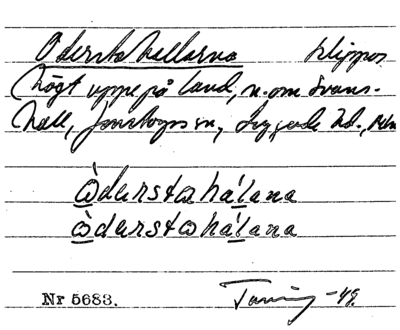 Odersta hallarna klippor
högt uppe på land, n. om Svans-
hall, Jonstorps sn, Luggude hd.,
òderstahálana
òderstahálana
Nr 5683. -49.